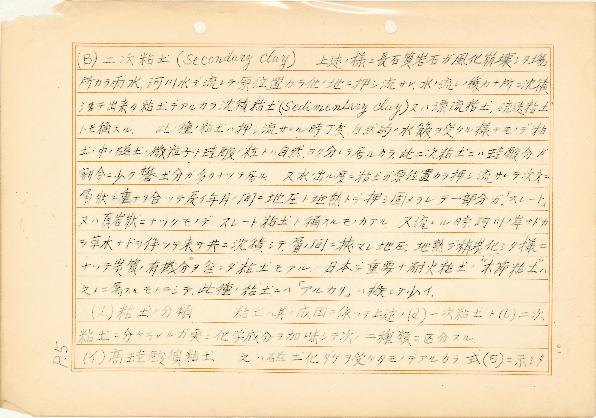 (B) 二次粘土 (Secondary Clay) 上述ノ様ニ長石質岩石ガ風化崩壊シタ場
所カラ雨水, 河川水デ流シテ原位置カラ他ノ地ニ押シ流サレ, 水ノ流レノ機カナ所ニ沈積
シテ出来タ粘土デアルカラ沈積粘土 (Sedimentary Clay) 又ハ漂流粘土, 流送粘土
トモ稱スル. 此ノ種ノ粘土ハ押シ流サレル時丁度自然的ノ水簸ヲ受ケル様ナモノデ粘
土ノ中ノ磁土ノ微粒子ト珪酸ノ粒トハ自然フリ分ケラレ居ルカラ, 此ニ次粘土ニハ珪酸分ガ
割合ニ少ク礬土分ガ多クナッテ居ル. 又水出ル度ニ粘土ガ原位置カラ押シ流サレテ次々ニ
層狀ニ重ナリ合ッテ長イ年月ノ間ニ地圧ト地熱トデ押シ固メラレテ一部分ガ「スレート」
又ハ頁岩狀ニナッタモノデ スレート粘土ト稱スルモノガアル. 又流レル時, 河川ノ岸ナドカ
ラ草木ナドヲ伴ッテ來テ共ニ沈積シテ, 層ノ間ニ挾マレ地圧, 地熱デ稍炭化シタ様ニ
ナッテ炭質ノ有機分ヲ含ンダ粘土モアル. 日本デ重要ナ耐火粘土ノ "木節粘土" ハ
之ニ属スルモノニシテ, 此種ノ粘土ニハ「アルカリ」ハ極シテ少イ.
(2) 粘土ノ分類 粘土ハ其ノ成因ニ依ッテ上述ノ (a) 一次粘土ト (b) 二次
粘土ニ分ケラレルガ更ニ化学成分ヲ加味シテ次ノ二種類ニ区分スル.
(イ) 高珪酸質粘土 之ハ磁土化ダケヲ受ケタモノデアルカラ 式(5)ニ示シタ
P5